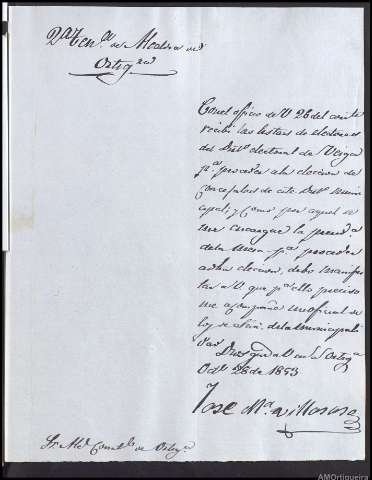 2ª Tena de Alcaldia de
Ortigra
Con el oficio de V 26 del corrte
recibi las listas de electores
del Disto electoral de Veiga
pa proceder a la eleccion de
Concejales de este Disto muni-
cipal; y como por aquel se
me encargue la presida
de la Mesa pa proceder
a dha eleccion, debo manifes-
tar a V que pa ello preciso
me acompañe un oficial de
la de la municipali-
dad
Dios gue a V Ortiga
Octe 28 de 1853
Jose Ma Villasuso
Sr. Alce Constl de Ortiga
AMOrtigueira